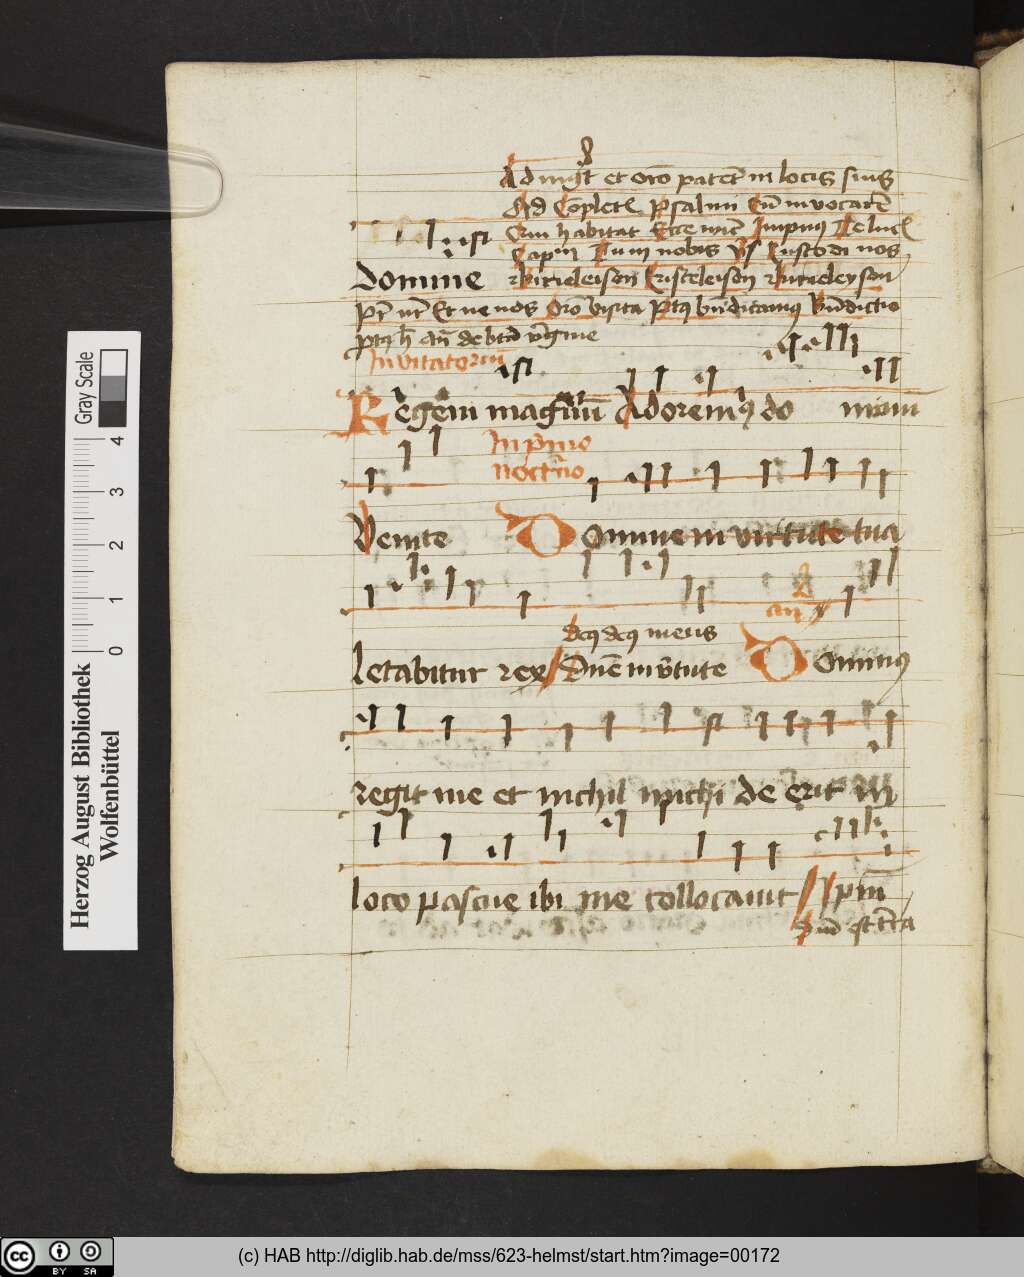 Ad mgt et oro patet in locis suis
Ad Coplet Psalmi Cu invocare
Cum habitat Ecce nuc Impnus Te luc
Capm Tu in nobis vs Custodi nos
Domine kirieleison Cristeleison kirieleyson
Pr nr Et ne nos Oro visita Ptus bndicamus Bndictio
ptus h an de bta virgine
Invitatorium
Regem magnum Adoremus do minum
In primo
nocturno
Venite Domine in virtute tua
an
Deus deus meus
letabitur rex Dne in virtute Dominus
regit me et nichil michi de erit in
loco pascue ibi me collocavit Ipm
Dni est tra
Gray Scale
4 3 2 1 0
Herzog August Bibliothek
Wolfenbüttel
cc BY SA
(c) HAB http://diglib.hab.de/mss/623-helmst/start.htm?image=00172